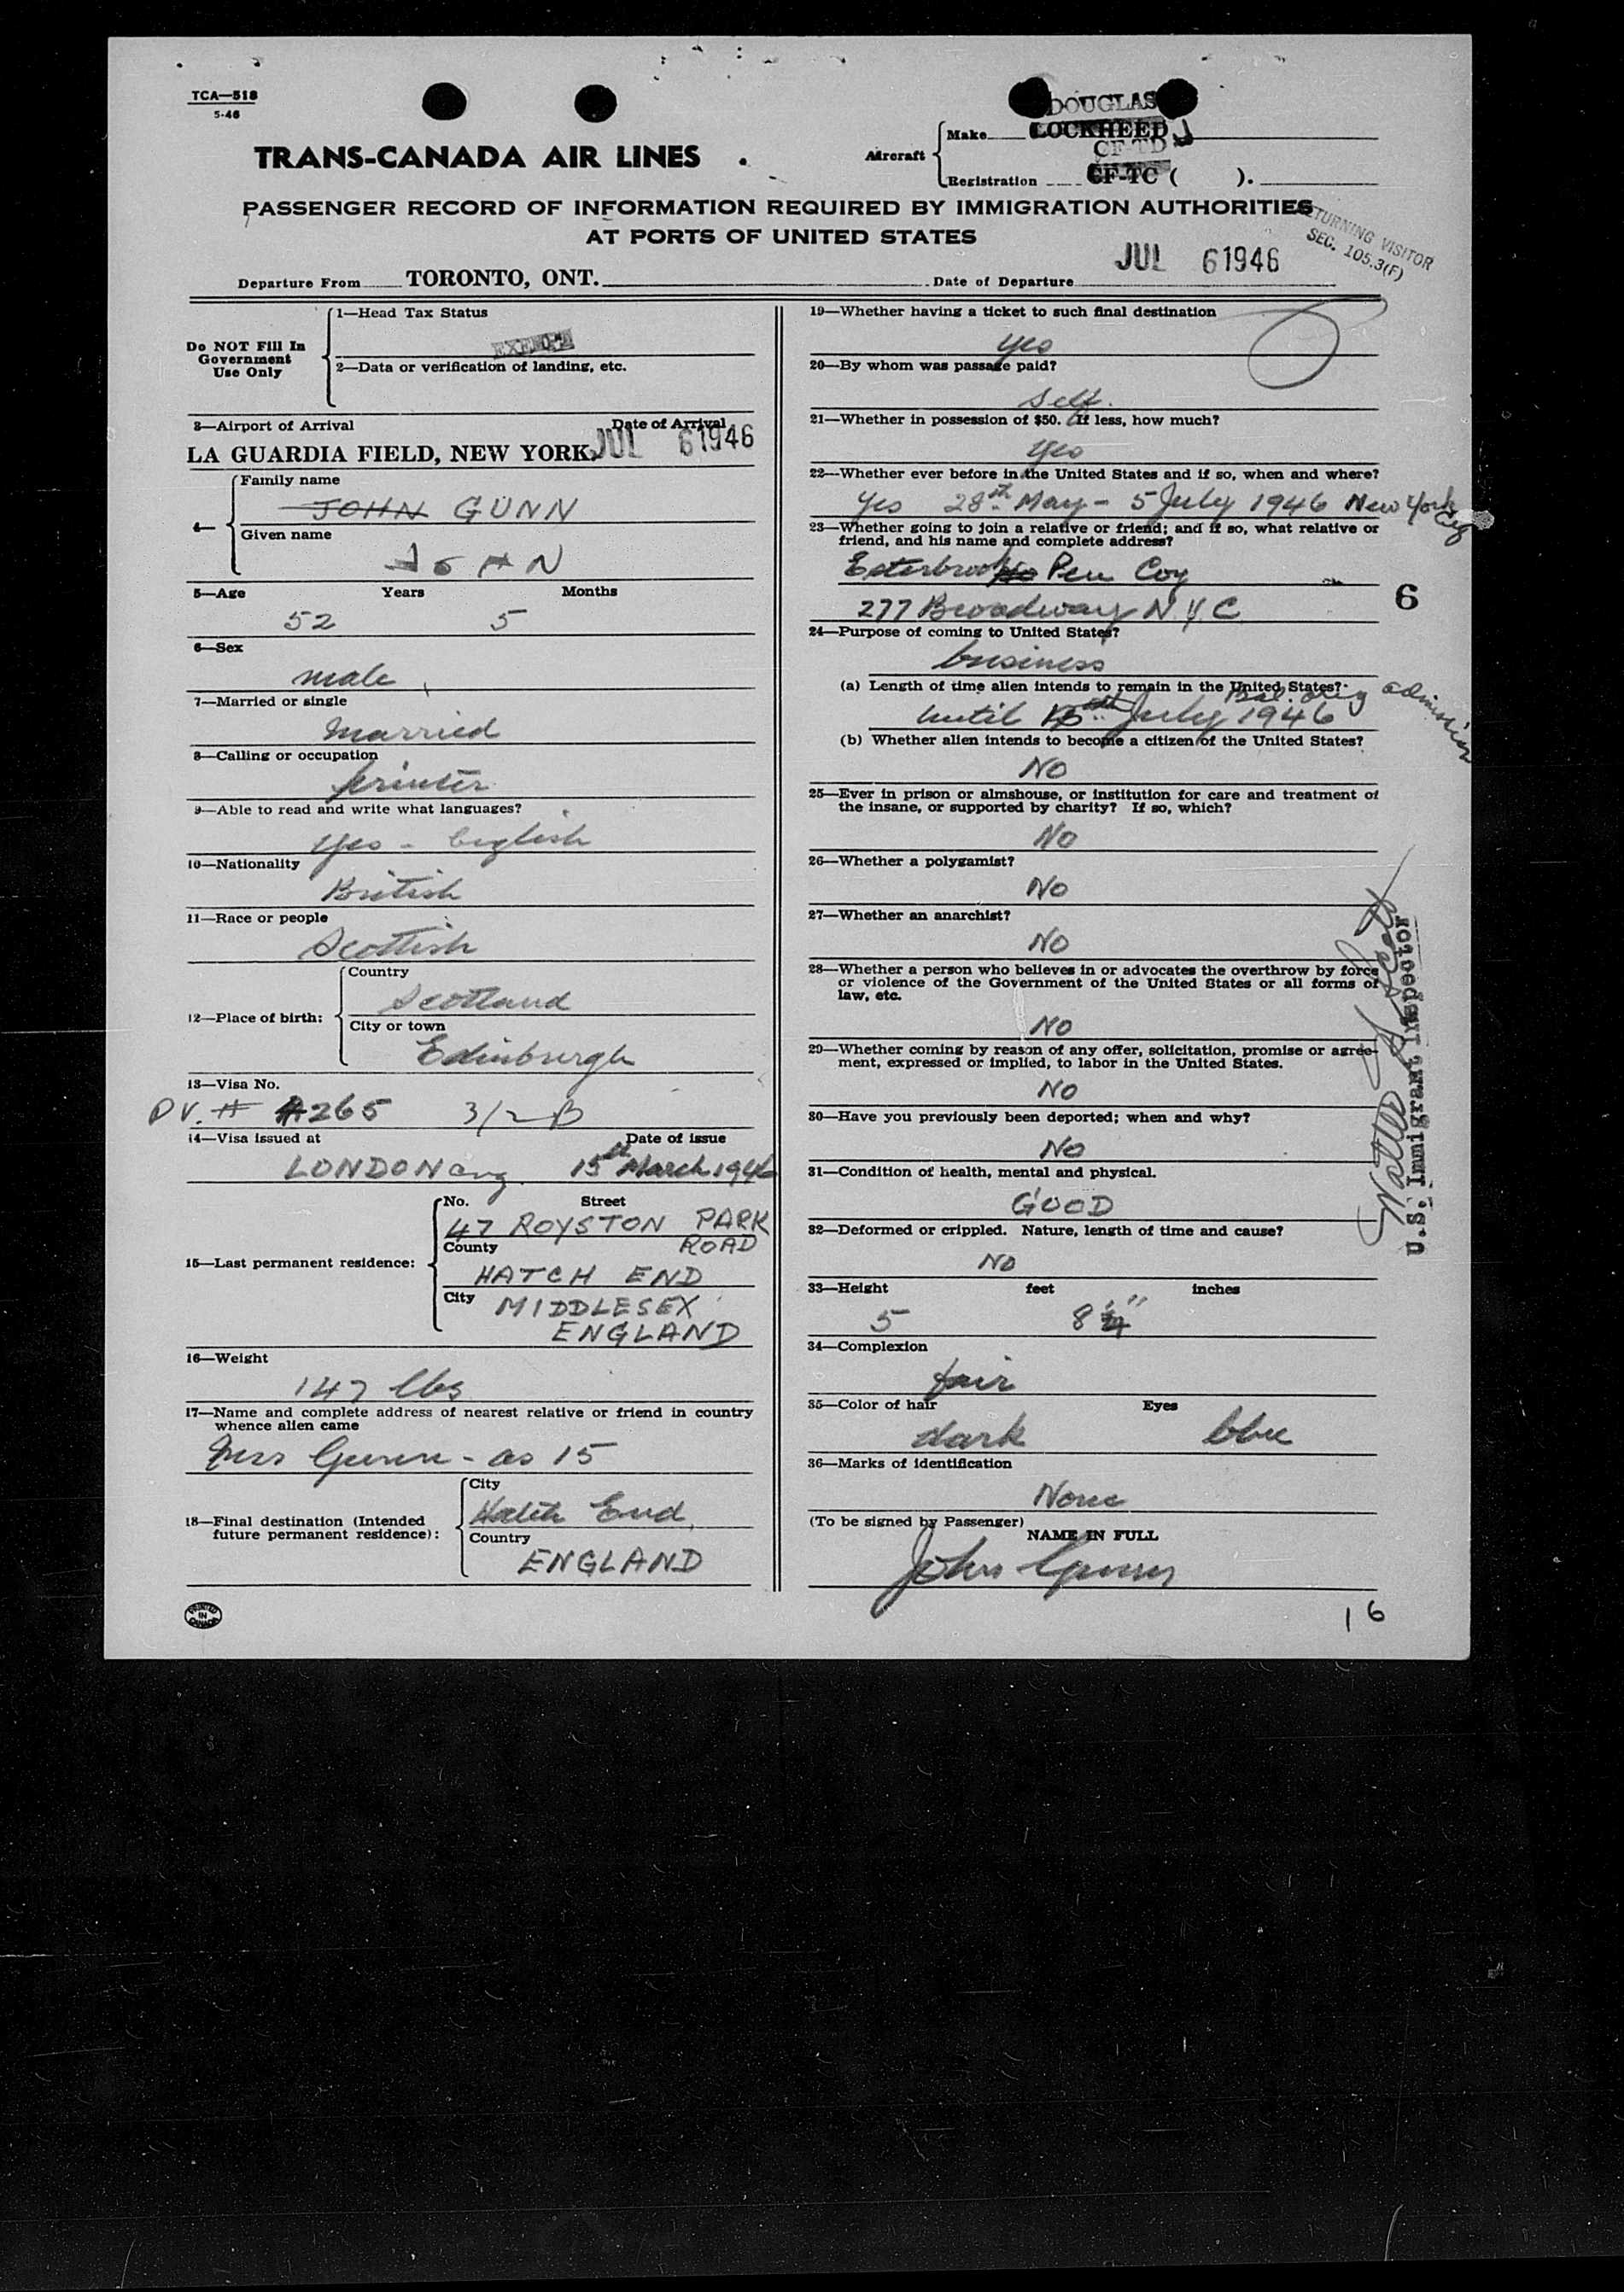 TCA—518
5-46
DOUGLAS
Make LOCKHEED J
Aircraft
CF-TD
Registration CF-TC ( ).
TRANS-CANADA AIR LINES
PASSENGER RECORD OF INFORMATION REQUIRED BY IMMIGRATION AUTHORITIES
AT PORTS OF UNITED STATES
RETURNING VISITOR
SEC. 105.3(F)
Departure From TORONTO, ONT. Date of Departure JUL 6 1946
Do NOT Fill In
Government
Use Only
1—Head Tax Status
EXEMPT
2—Data or verification of landing, etc.
3—Airport of Arrival Date of Arrival
LA GUARDIA FIELD, NEW YORK. JUL 6 1946
4—
Family name
JOHN GUNN
Given name
JOHN
5—Age Years Months
52 5
6—Sex
male
7—Married or single
Married
8—Calling or occupation
printer
9—Able to read and write what languages?
Yes - English
10—Nationality
British
11—Race or people
Scottish
12—Place of birth:
Country
Scotland
City or town
Edinburgh
13—Visa No.
PV. # A265 3/2 B
14—Visa issued at Date of issue
LONDON eng. 15th March 1946
15—Last permanent residence:
No. Street
47 ROYSTON PARK
ROAD
County
HATCH END
City
MIDDLESEX
ENGLAND
16—Weight
147 lbs
17—Name and complete address of nearest relative or friend in country
whence alien came
Mrs Gunn - as 15
18—Final destination (Intended
future permanent residence):
City
Hatch End,
Country
ENGLAND
PRINTED
IN
CANADA
19—Whether having a ticket to such final destination
Yes
20—By whom was passage paid?
Self.
21—Whether in possession of $50. If less, how much?
Yes
22—Whether ever before in the United States and if so, when and where?
Yes 28th May - 5 July 1946 New York City
23—Whether going to join a relative or friend; and if so, what relative or
friend, and his name and complete address?
Esterbrook Pen Coy
277 Broadway N.Y.C
6
24—Purpose of coming to United States?
business
(a) Length of time alien intends to remain in the United States?
Bal. orig admission
until 15th July 1946
(b) Whether alien intends to become a citizen of the United States?
NO
25—Ever in prison or almshouse, or institution for care and treatment of
the insane, or supported by charity? If so, which?
NO
26—Whether a polygamist?
NO
27—Whether an anarchist?
NO
28—Whether a person who believes in or advocates the overthrow by force
or violence of the Government of the United States or all forms of
law, etc.
NO
29—Whether coming by reason of any offer, solicitation, promise or agree-
ment, expressed or implied, to labor in the United States.
NO
30—Have you previously been deported; when and why?
NO
31—Condition of health, mental and physical.
GOOD
32—Deformed or crippled. Nature, length of time and cause?
NO
33—Height feet inches
5 8
34—Complexion
fair
35—Color of hair Eyes
dark blue
36—Marks of identification
None
(To be signed by Passenger)
NAME IN FULL
John Gunn
U.S. Immigrant Inspector
16